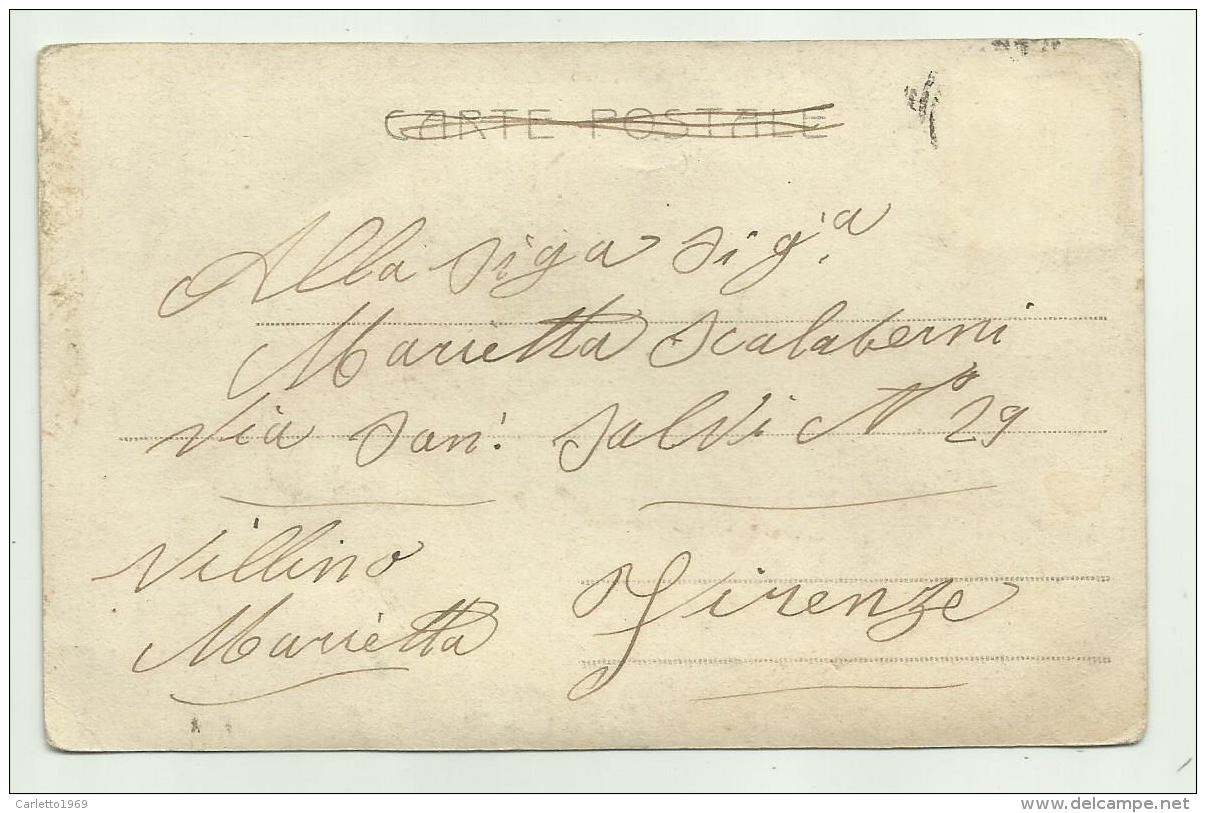 CARTE POSTALE
Alla Siga Sig.ª
Marietta Scalaberni
Via San. Salvi Nº 29
Villino
Marietta
Firenze
Carletto1969
www.delcampe.net